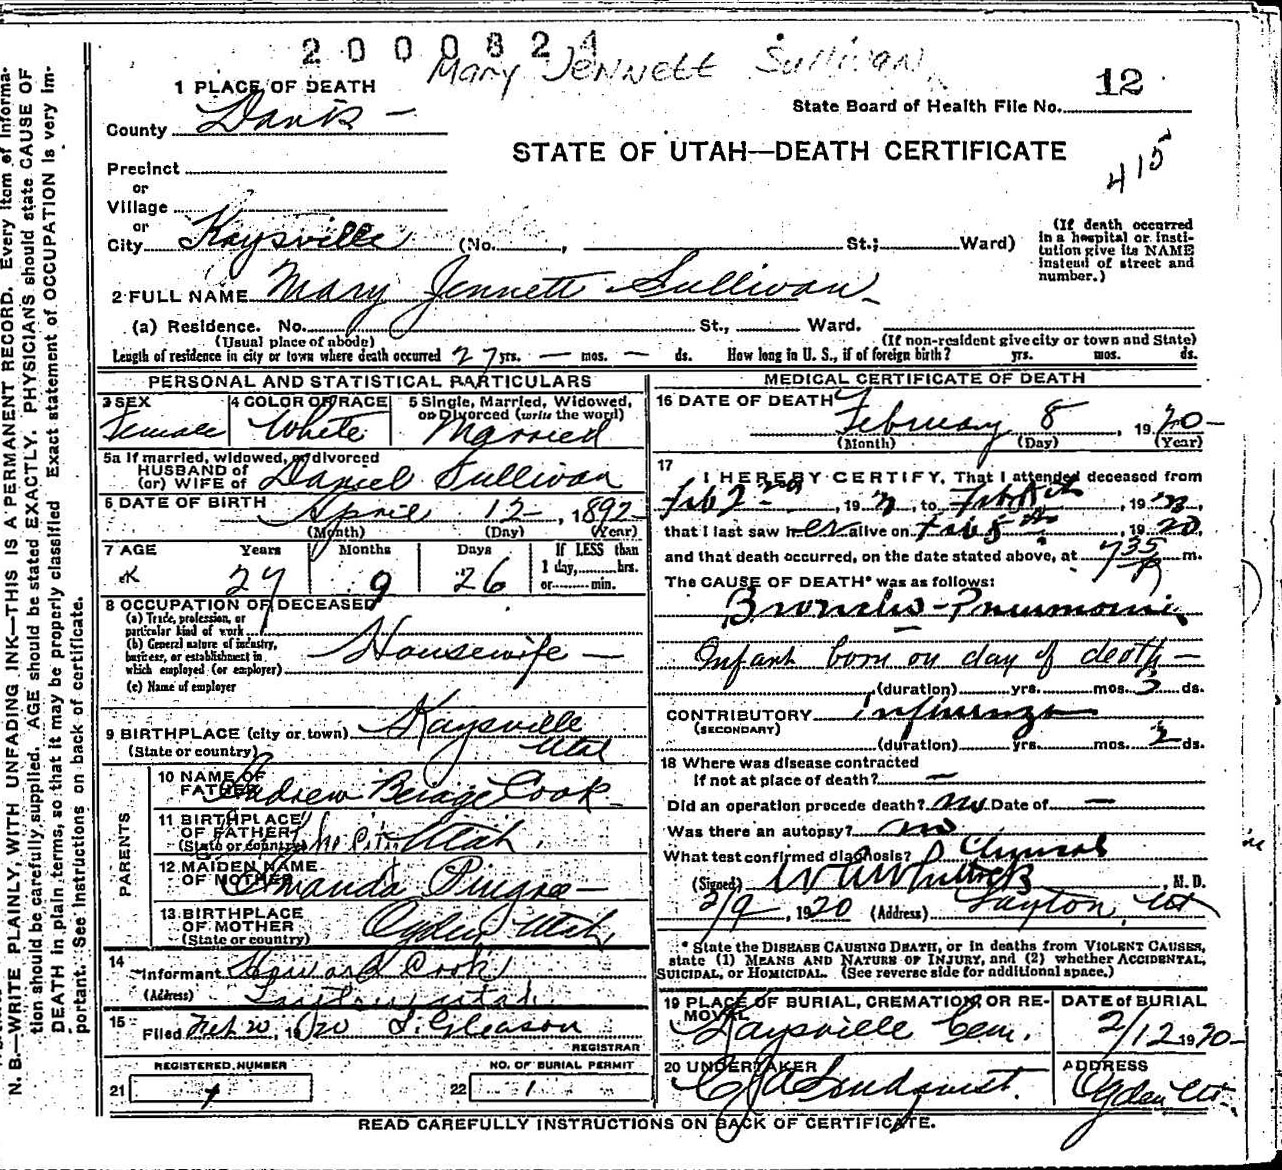 2000824
Mary Jennett Sullivan
12
1 PLACE OF DEATH
State Board of Health File No.
County Davis
STATE OF UTAH—DEATH CERTIFICATE
415
Precinct
or
Village
or
City Kaysville (No. , St.; Ward)
(If death occurred in a hospital or institution give its NAME instead of street and number.)
2 FULL NAME Mary Jennett Sullivan
(a) Residence. No. St., Ward.
(Usual place of abode) (If non-resident give city or town and State)
Length of residence in city or town where death occurred 27 yrs. — mos. — ds. How long in U. S., if of foreign birth? yrs. mos. ds.
PERSONAL AND STATISTICAL PARTICULARS
3 SEX Female
4 COLOR OR RACE White
5 Single, Married, Widowed, or Divorced (write the word) Married
5a If married, widowed, or divorced
HUSBAND of
(or) WIFE of Daniel Sullivan
6 DATE OF BIRTH April 12, 1892
(Month) (Day) (Year)
7 AGE Years Months Days If LESS than
27 9 26 1 day, hrs.
or min.
8 OCCUPATION OF DECEASED
(a) Trade, profession, or
particular kind of work
(b) General nature of industry,
business, or establishment in
which employed (or employer) Housewife —
(c) Name of employer
9 BIRTHPLACE (city or town) Kaysville
(State or country) Utah
PARENTS
10 NAME OF FATHER Andrew Cook
11 BIRTHPLACE OF FATHER
(State or country) Utah
12 MAIDEN NAME OF MOTHER Amanda Pingree
13 BIRTHPLACE OF MOTHER
(State or country) Ogden Utah
14 Informant Howard Cook
(Address) Layton, Utah
15 Filed 1920 Gleason
REGISTRAR
REGISTERED NUMBER
21
NO. OF BURIAL PERMIT
22 1
MEDICAL CERTIFICATE OF DEATH
16 DATE OF DEATH
February 8, 1920
(Month) (Day) (Year)
17 I HEREBY CERTIFY, That I attended deceased from
Feb 2nd, 19 , to Feb , 19 ,
that I last saw her alive on Feb 8th, 1920,
and that death occurred, on the date stated above, at 735 P m.
The CAUSE OF DEATH* was as follows:
Broncho-Pneumonia
Infant born on day of death —
(duration) yrs. mos. 3 ds.
CONTRIBUTORY Influenza
(SECONDARY)
(duration) yrs. mos. 2 ds.
18 Where was disease contracted
if not at place of death? —
Did an operation precede death? no Date of —
Was there an autopsy? no
What test confirmed diagnosis? Clinical
(Signed) , M. D.
2/9, 1920 (Address) Layton, Ut
* State the DISEASE CAUSING DEATH, or in deaths from VIOLENT CAUSES,
state (1) MEANS AND NATURE OF INJURY, and (2) whether ACCIDENTAL,
SUICIDAL, or HOMICIDAL. (See reverse side for additional space.)
19 PLACE OF BURIAL, CREMATION, OR REMOVAL
Kaysville Cem.
DATE of BURIAL
2/12 1920
20 UNDERTAKER
Lindquist.
ADDRESS
Ogden, Ut.
READ CAREFULLY INSTRUCTIONS ON BACK OF CERTIFICATE.
N. B.—WRITE PLAINLY, WITH UNFADING INK—THIS IS A PERMANENT RECORD. Every item of informa-
tion should be carefully supplied. AGE should be stated EXACTLY. PHYSICIANS should state CAUSE OF
DEATH in plain terms, so that it may be properly classified. Exact statement of OCCUPATION is very im-
portant. See Instructions on back of certificate.